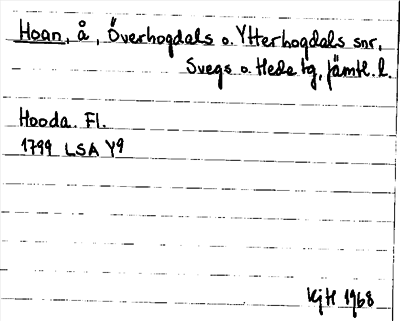 Hoan, å, Överhogdals o. Ytterhogdals snr,
Svegs o. Hede tg, Jämtl. l.
Hooda. Fl.
1799 LSA Y9
KjH 1968